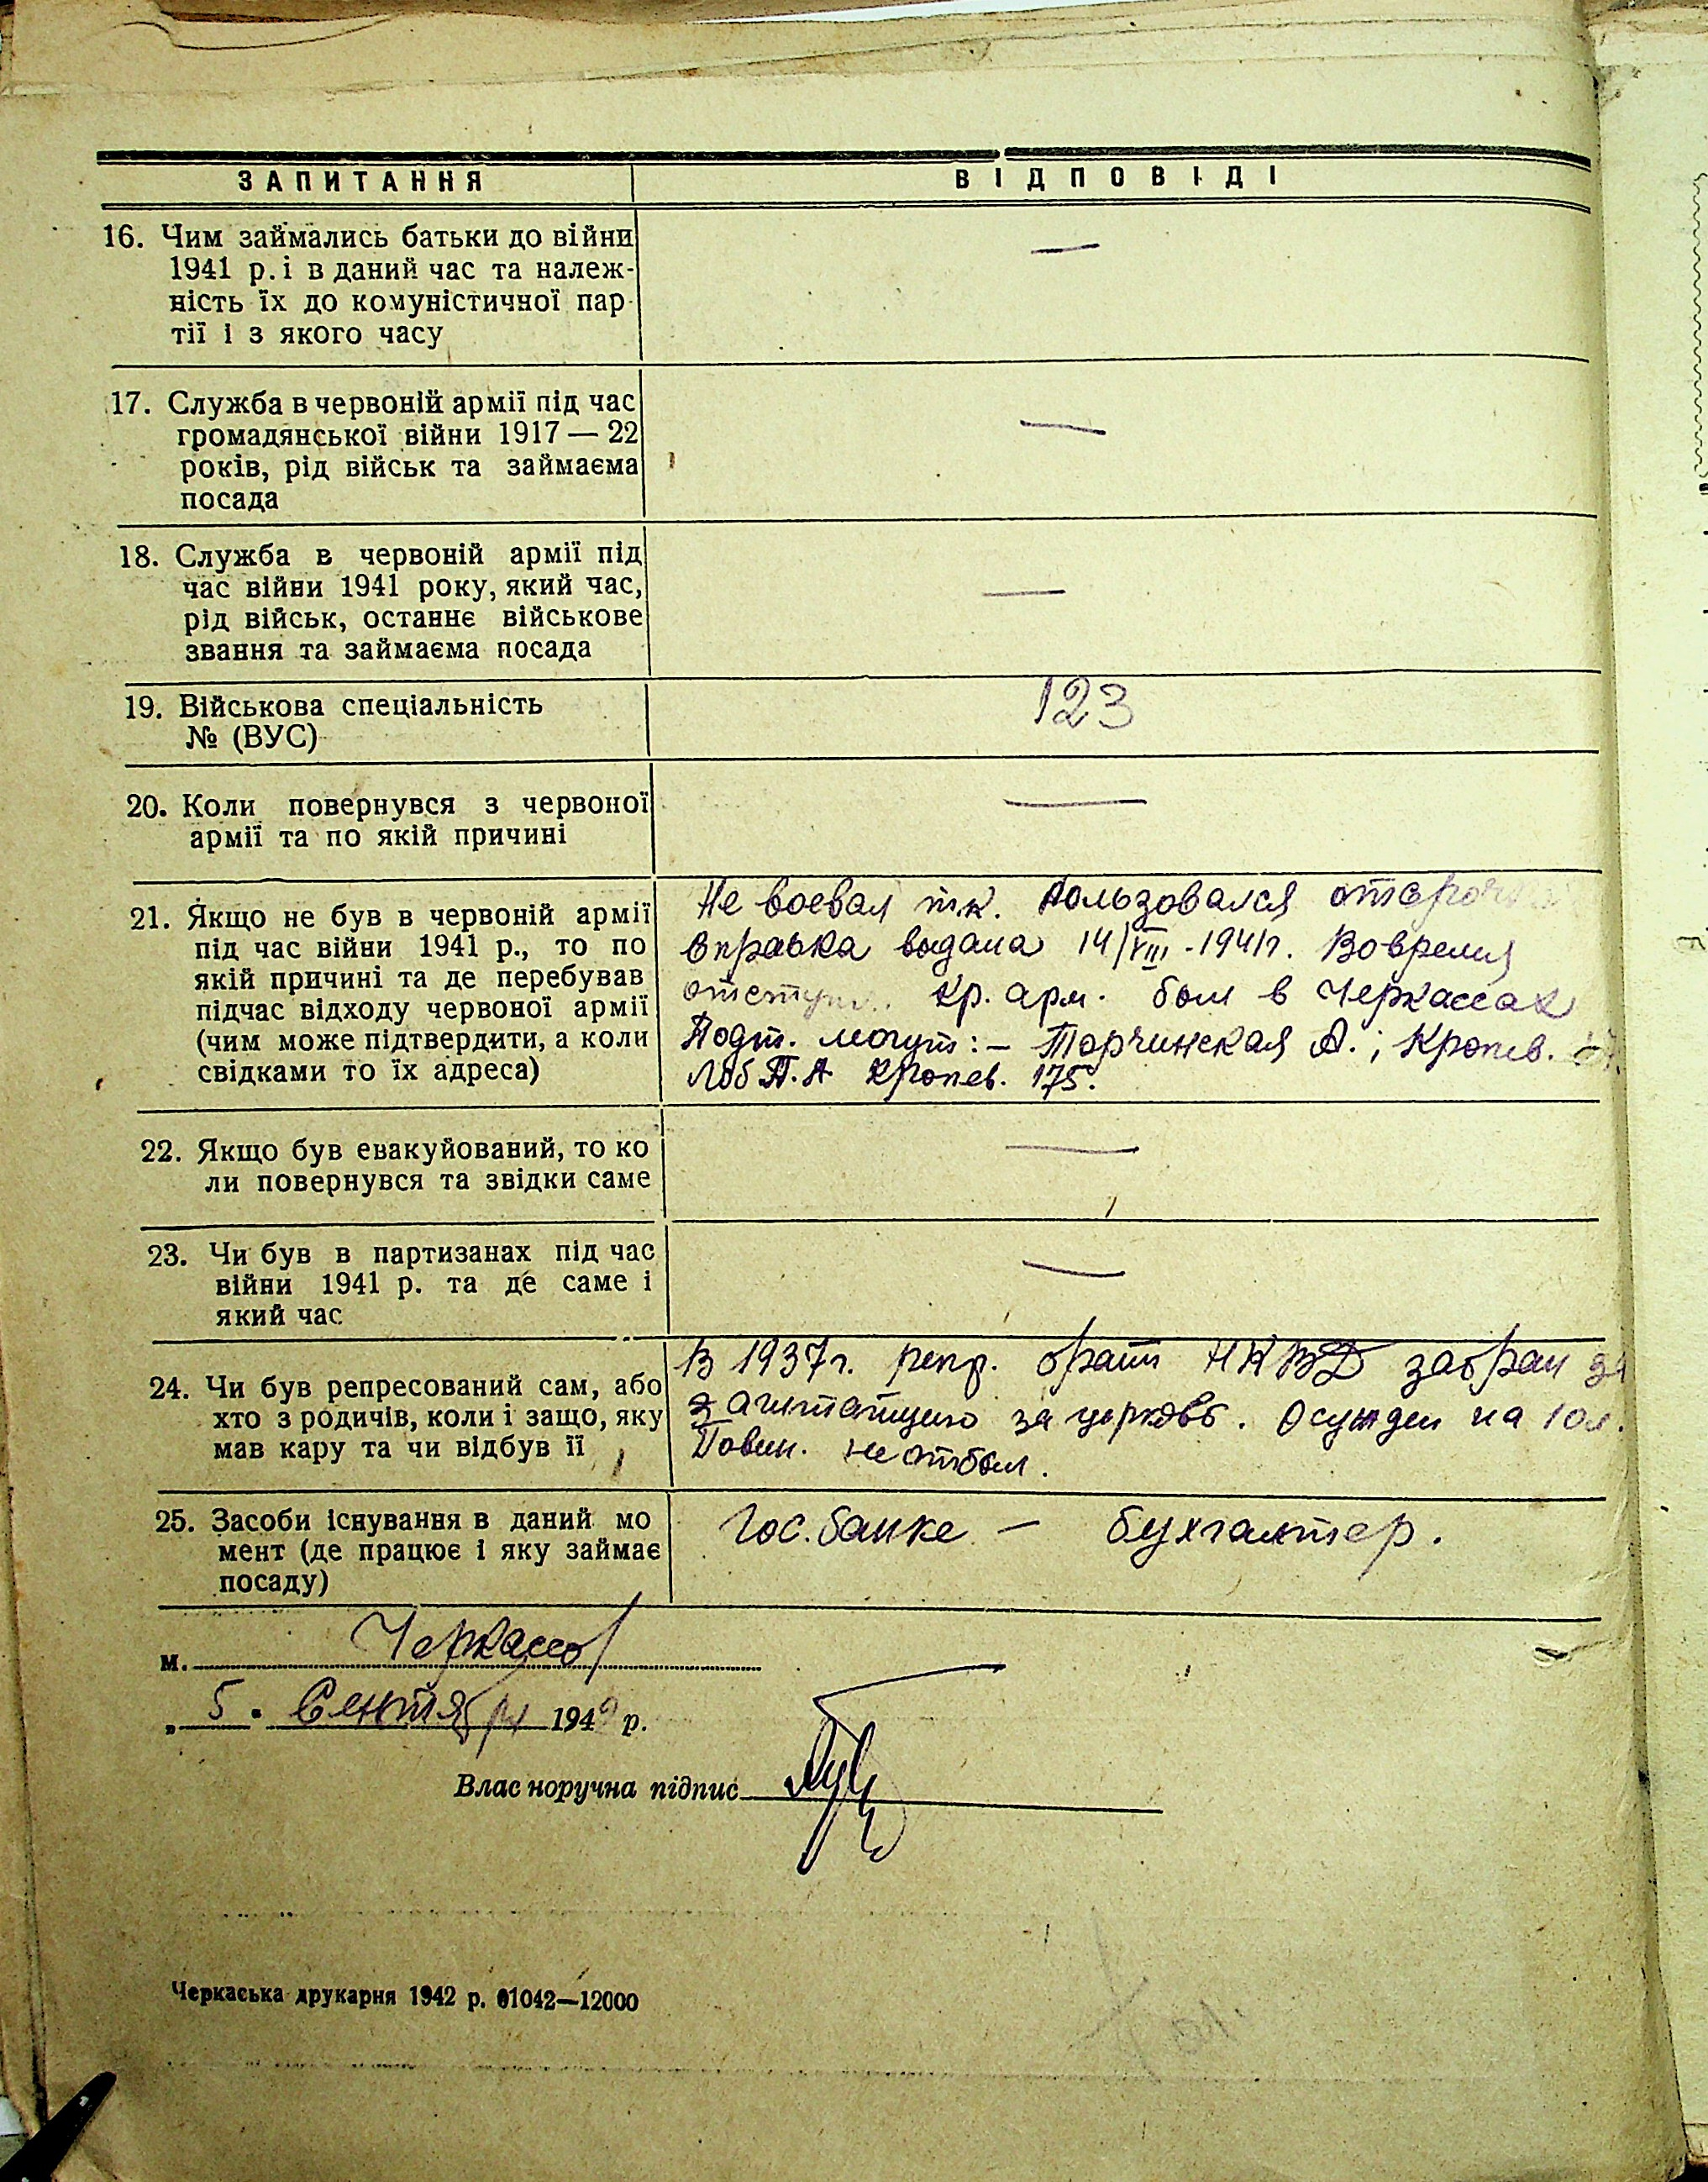 ЗАПИТАННЯ ВІДПОВІДІ
16. Чим займались батьки до війни —
1941 р. і в даний час та належ-
ність їх до комуністичної пар-
тії і з якого часу
17. Служба в червоній армії під час —
громадянської війни 1917 — 22
років, рід військ та займаєма
посада
18. Служба в червоній армії під —
час війни 1941 року, який час,
рід військ, останнє військове
звання та займаєма посада
19. Військова спеціальність 123
№ (ВУС)
20. Коли повернувся з червоної —
армії та по якій причині
21. Якщо не був в червоній армії
під час війни 1941 р., то по
якій причині та де перебував
підчас відходу червоної армії
(чим може підтвердити, а коли
свідками то їх адреса)
Не воевал т.к. пользовался отсрочкой
Справка выдана 14/VIII-1941г. Вовремя
отступл. кр. арм. был в Черкассах
Подт. могут: – Торчинская А.; Кропив.
Лоб П.А Кропев. 175.
22. Якщо був евакуйований, то ко —
ли повернувся та звідки саме
23. Чи був в партизанах під час —
війни 1941 р. та де саме і
який час
24. Чи був репресований сам, або
хто з родичів, коли і защо, яку
мав кару та чи відбув її
В 1937г. репр. брат НКВД забран за
агитацию за церковь. Осужден на 10л.
Повин. не отбыл.
25. Засоби існування в даний мо
мент (де працює і яку займає
посаду)
Гос. банке — бухгалтер.
м. Черкассы
„ 5. Сентября 194 р.
Власноручна підпис
Черкаська друкарня 1942 р. 01042—12000